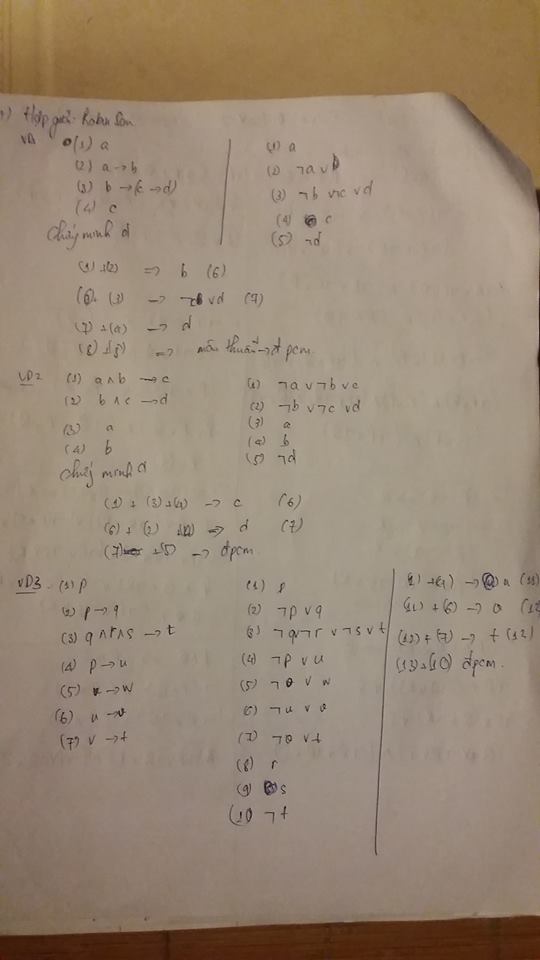 1) Hợp giải Robin Son
VD1 (1) a
(2) a → b
(3) b → (c → d)
(4) c
Chứng minh d
(1) a
(2) ¬a ∨ b
(3) ¬b ∨ ¬c ∨ d
(4) c
(5) ¬d
(1) + (2) => b (6)
(6) + (3) → ¬c ∨ d (7)
(7) + (4) → d
(8) + (5) => mâu thuẫn → đpcm.
VD2 (1) a ∧ b → c
(2) b ∧ c → d
(3) a
(4) b
Chứng minh d
(1) ¬a ∨ ¬b ∨ c
(2) ¬b ∨ ¬c ∨ d
(3) a
(4) b
(5) ¬d
(1) + (3) + (4) → c (6)
(6) + (2) + (4) => d (7)
(7) + (5) → đpcm.
VD3 (1) p
(2) p → q
(3) q ∧ r ∧ s → t
(4) p → u
(5) v → w
(6) u → v
(7) v → t
(1) p
(2) ¬p ∨ q
(3) ¬q ∨ ¬r ∨ ¬s ∨ t
(4) ¬p ∨ u
(5) ¬v ∨ w
(6) ¬u ∨ v
(7) ¬v ∨ t
(8) r
(9) s
(10) ¬t
(1) + (4) → u (11)
(11) + (6) → v (12
(12) + (7) → t (12)
(13) + (10) đpcm.